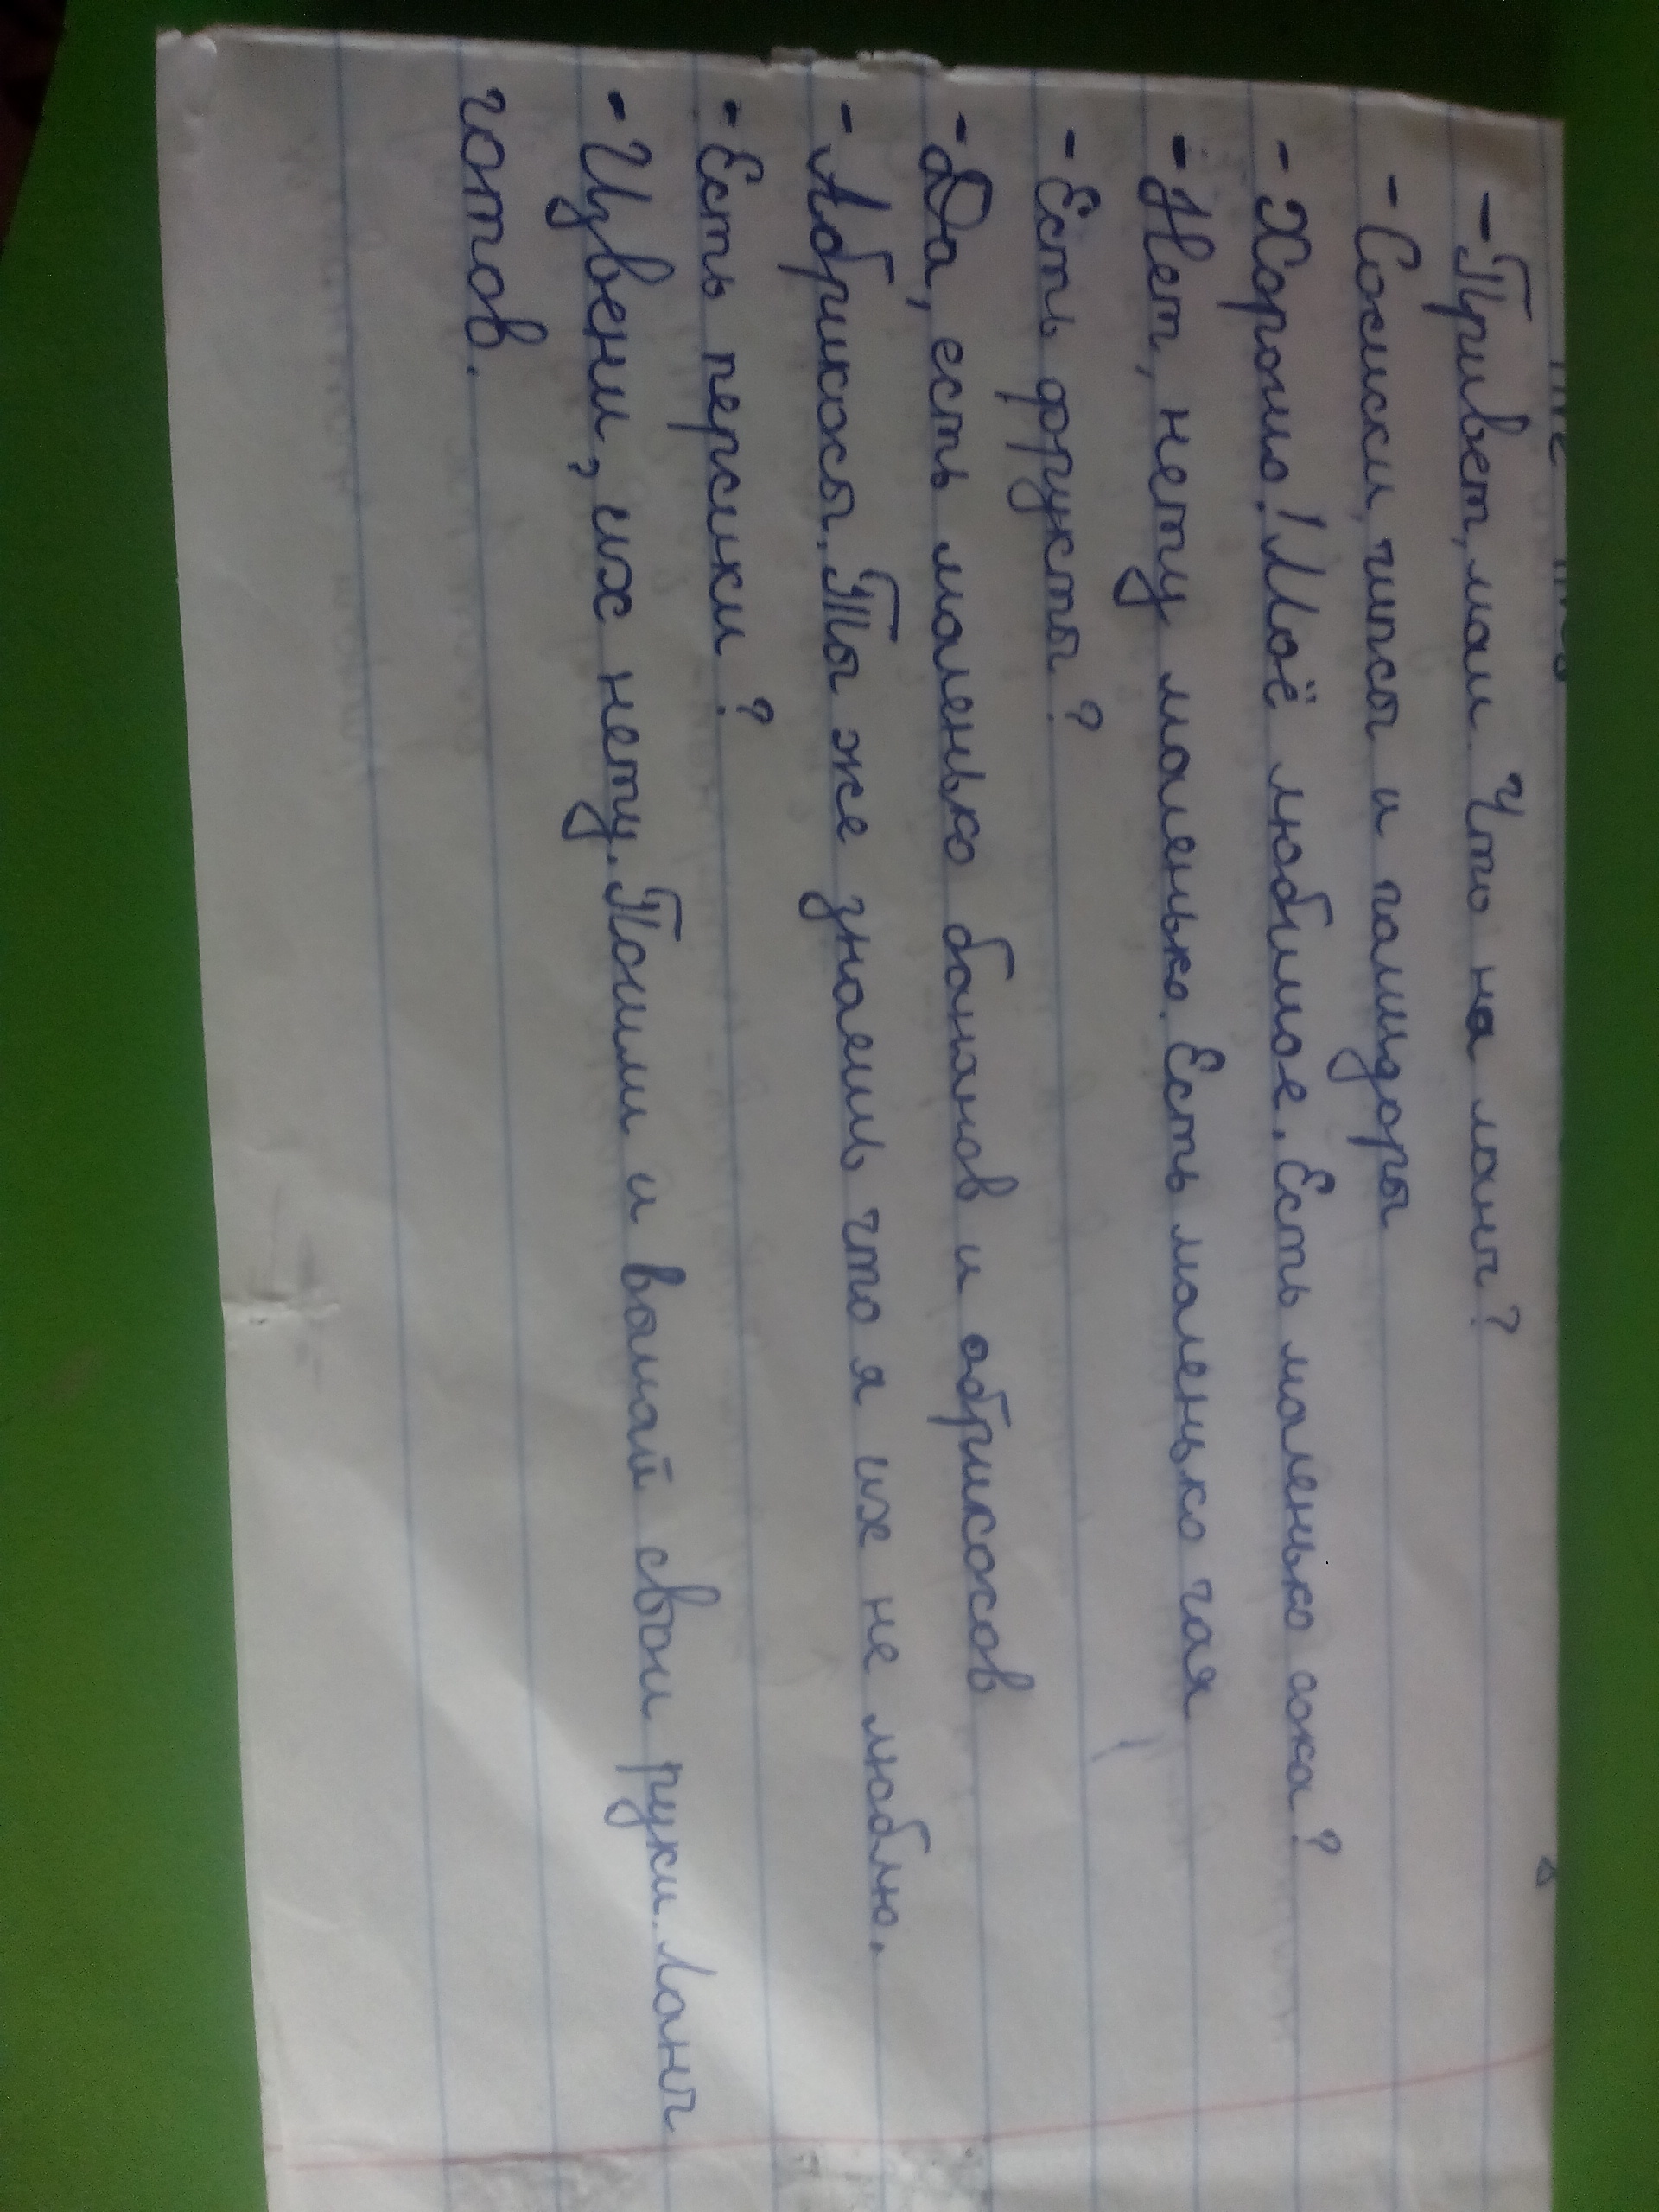 - Привет, мам. Что на ланч?
- Сосиски, чипсы и памидоры
- Хорошо! Моё любимое. Есть маленько сока?
- Нет, нету маленько. Есть маленько чая
- Есть фрукты?
- Да, есть маленько бананов и абрикосов
- Абрикосы. Ты же знаешь что я их не люблю.
- Есть персики?
- Извени, их нету. Пошли и вымай свои руки. Ланч
готов.